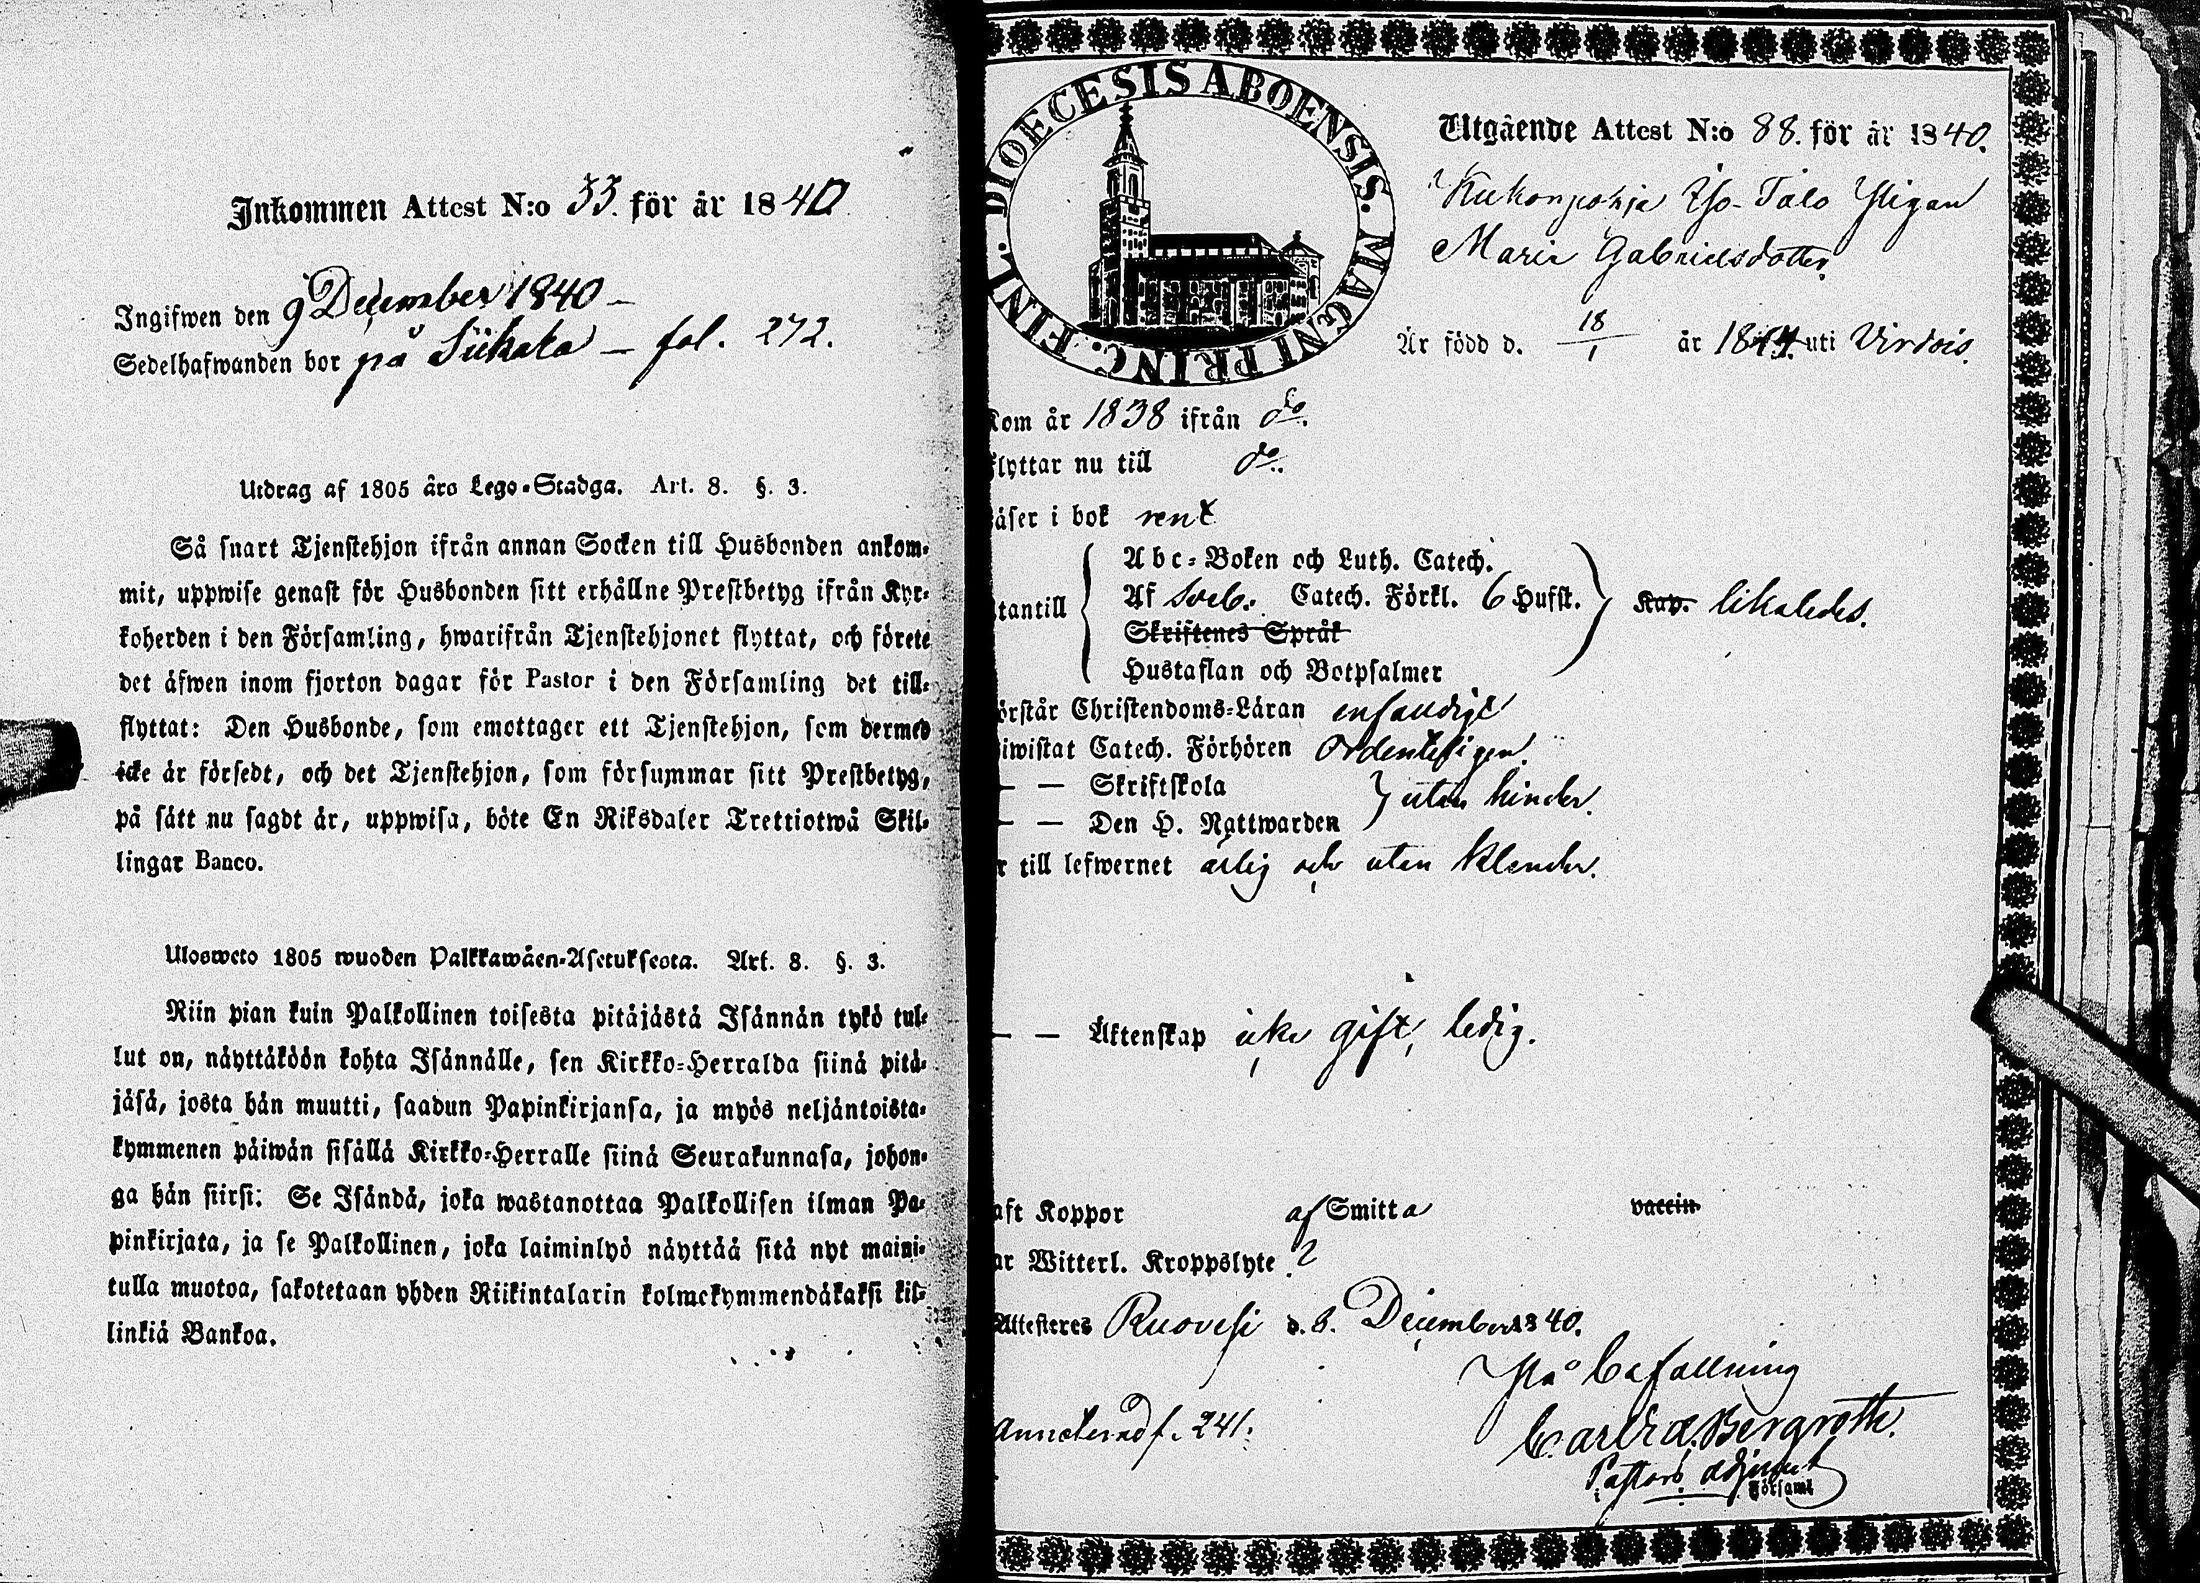 Inkommen Attest N:o 33. för år 1840.
Ingifwen den 9 December 1840 –
Sedelhafwanden bor på Siikala – fol. 272.
Utdrag af 1805 års Lego-Stadga. Art. 8. §. 3.
Så snart Tjenstehjon ifrån annan Socken till Husbonden ankom-
mit, uppwise genast för Husbonden sitt erhållne Prestbetyg ifrån Kyr-
koherden i den Församling, hwarifrån Tjenstehjonet flyttat, och förete
det äfwen inom fjorton dagar för Pastor i den Församling det till-
flyttat: Den Husbonde, som emottager ett Tjenstehjon, som dermed
icke är försedt, och det Tjenstehjon, som försummar sitt Prestbetyg,
på sätt nu sagdt är, uppwisa, böte En Riksdaler Trettiotwå Skil-
lingar Banco.
Ulosweto 1805 wuoden Palkkawäen-Asetuksesta. Art. 8. §. 3.
Niin pian kuin Palkollinen toisesta pitäjästä Isännän tykö tul-
lut on, näyttäköön kohta Isännälle, sen Kirkko-Herralda siinä pitä-
jäsä, josta hän muutti, saadun Papinkirjansa, ja myös neljäntoista-
kymmenen päiwän sisällä Kirkko-Herralle siinä Seurakunnasa, johon-
ga hän siirsi: Se Isändä, joka wastanottaa Palkollisen ilman Pa-
pinkirjata, ja se Palkollinen, joka laiminlyö näyttää sitä nyt maini-
tulla muotoa, sakotetaan yhden Riikintalarin kolmekymmendäkaksi kil-
linkiä Bankoa.
DIOECESIS ABOENSIS. MAGNI PRINC. FINL.
Utgående Attest N:o 88. för år 1840.
Kukonpohja Iso-Talo Pigan
Maria Gabrielsdotter.
Är född d. 18/1 år 1814. uti Virdois.
Kom år 1838 ifrån do.
flyttar nu till do.
läser i bok rent
Abc-Boken och Luth. Catech.
utantill Af Sveb. Catech. Förkl. 6 Hufst. Kap. likaledes.
Skriftenes Språk
Hustaflan och Botpsalmer
örstår Christendoms-Läran enfaldigt
iwistat Catech. Förhören Ordenteligen.
– – Skriftskola
– – Den H. Nattwarden utan hinder.
r till lefwernet ärlig och utan klander.
– – Äktenskap icke gift, ledig.
aft Koppor af Smitta vaccin
ar Witterl. Kroppslyte ?
Attesteres Ruovesi d. 8. December 1840.
På befallning
Bergroth.
Pastors adjunct
i Församl
f. 241.